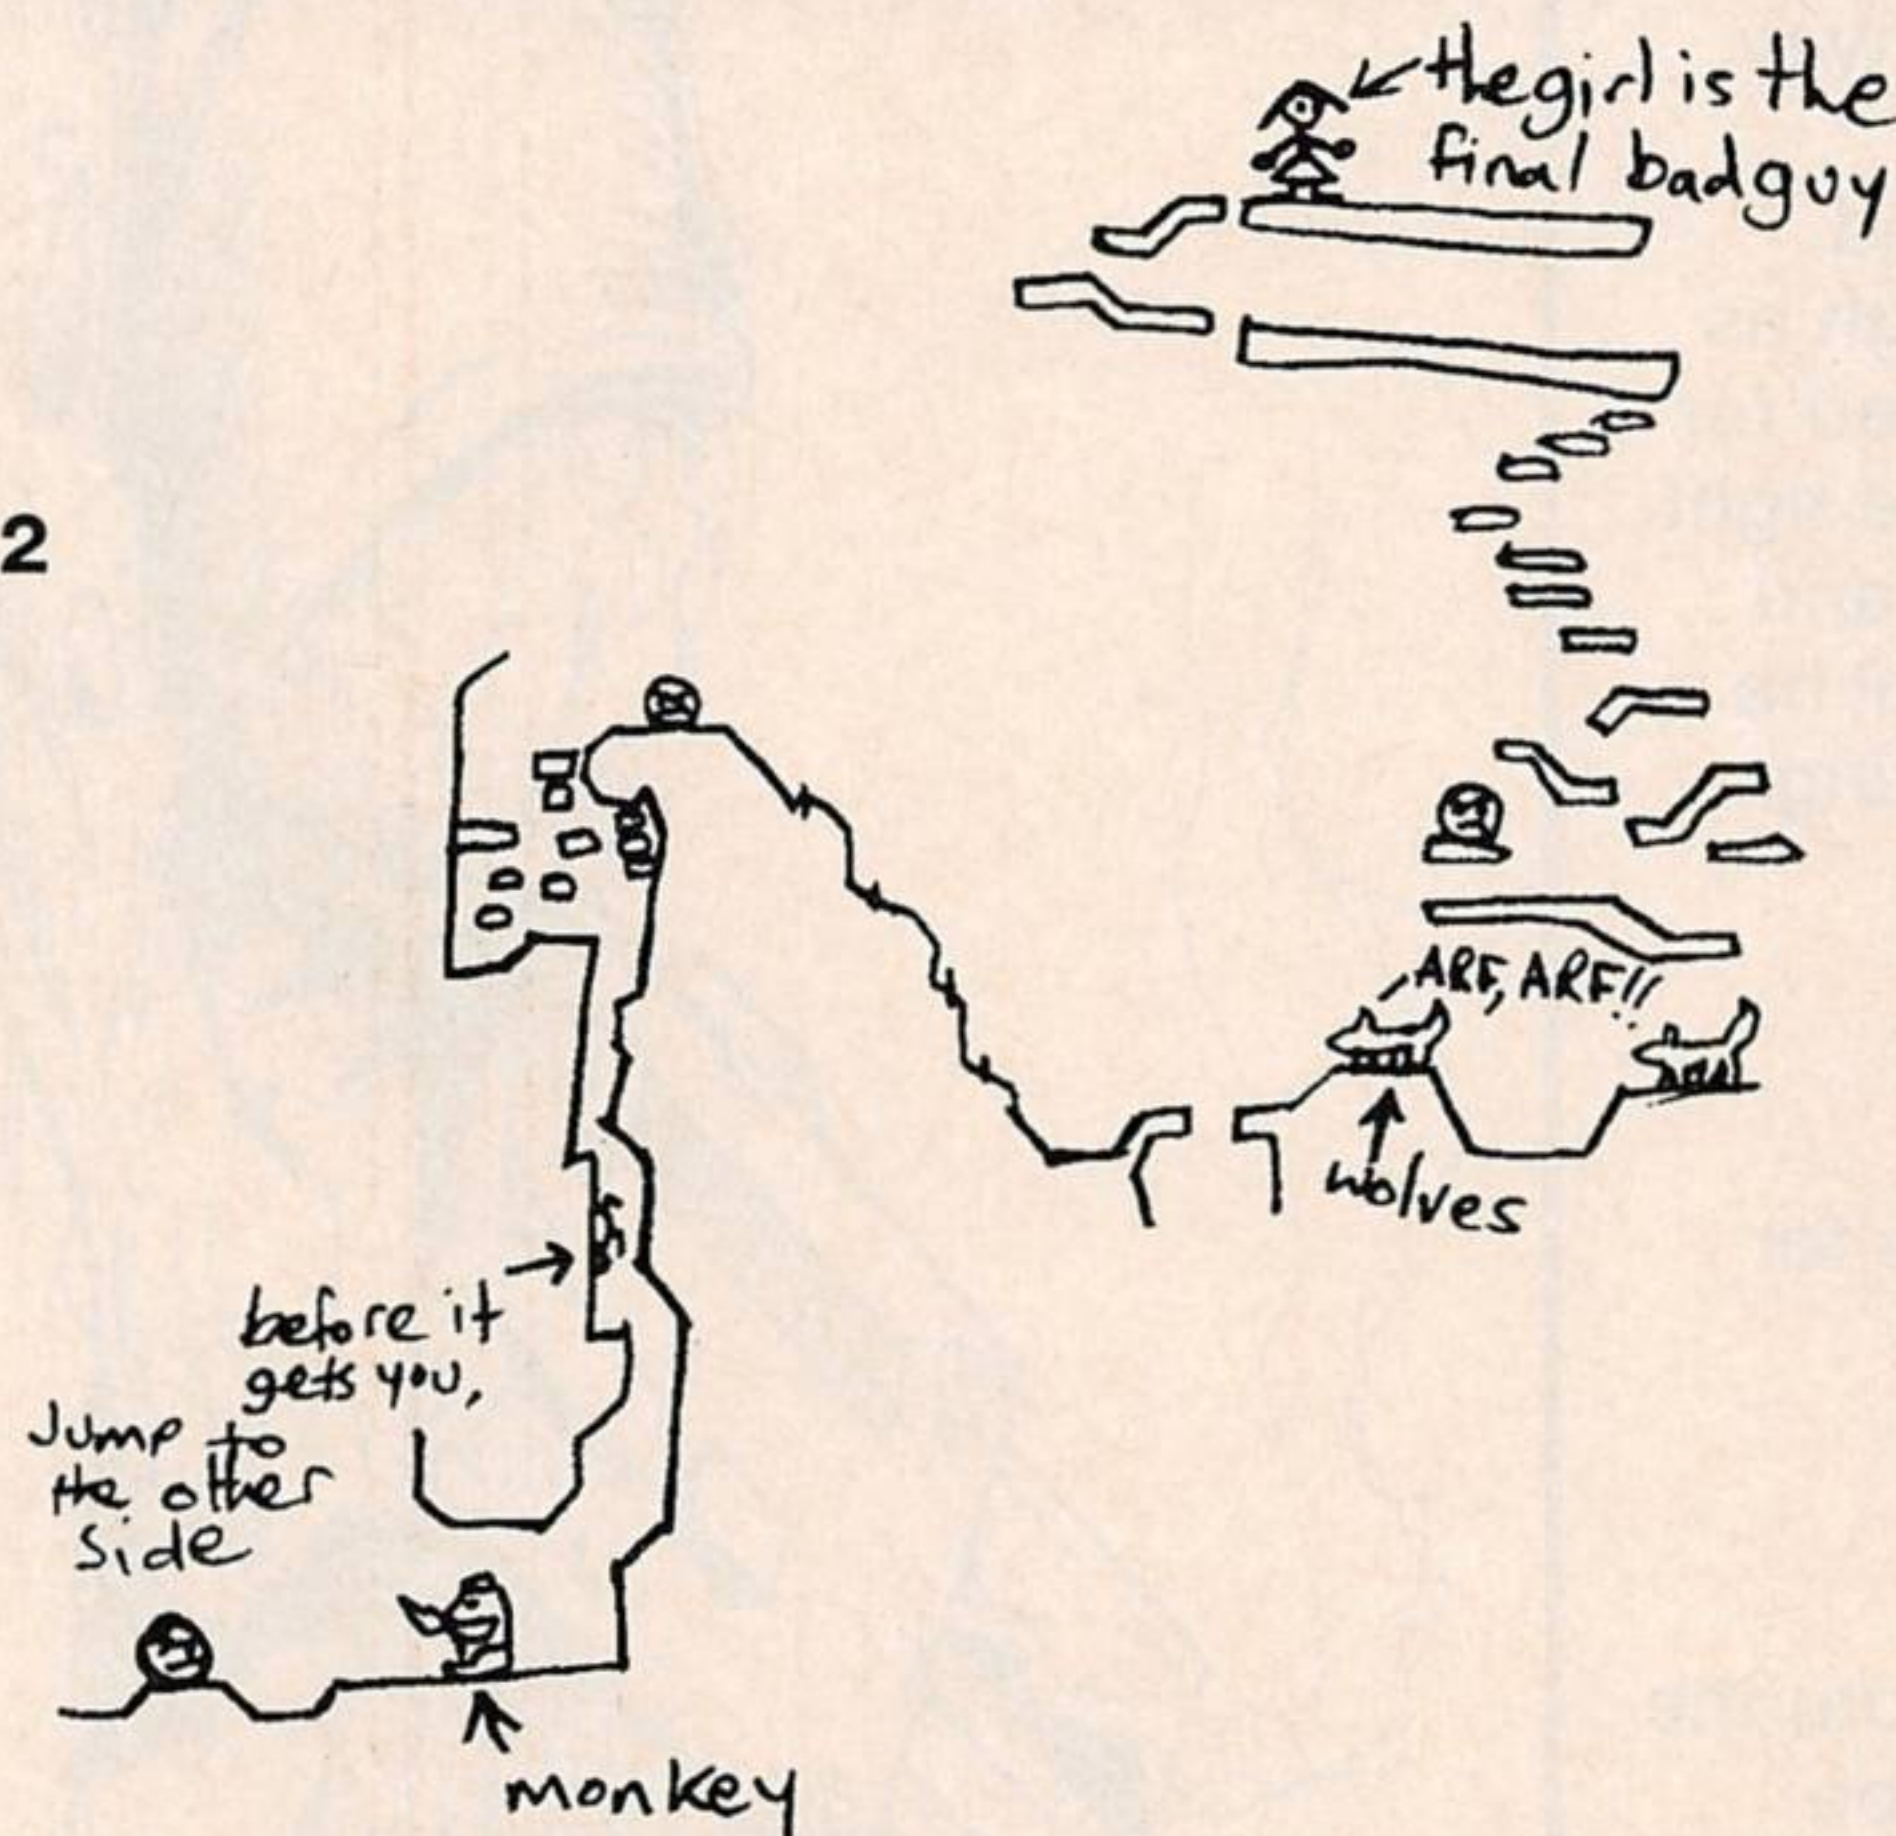 the girl is the
final bad guy
2
ARF, ARF!!
wolves
before it
gets you,
Jump to
the other
side
monkey